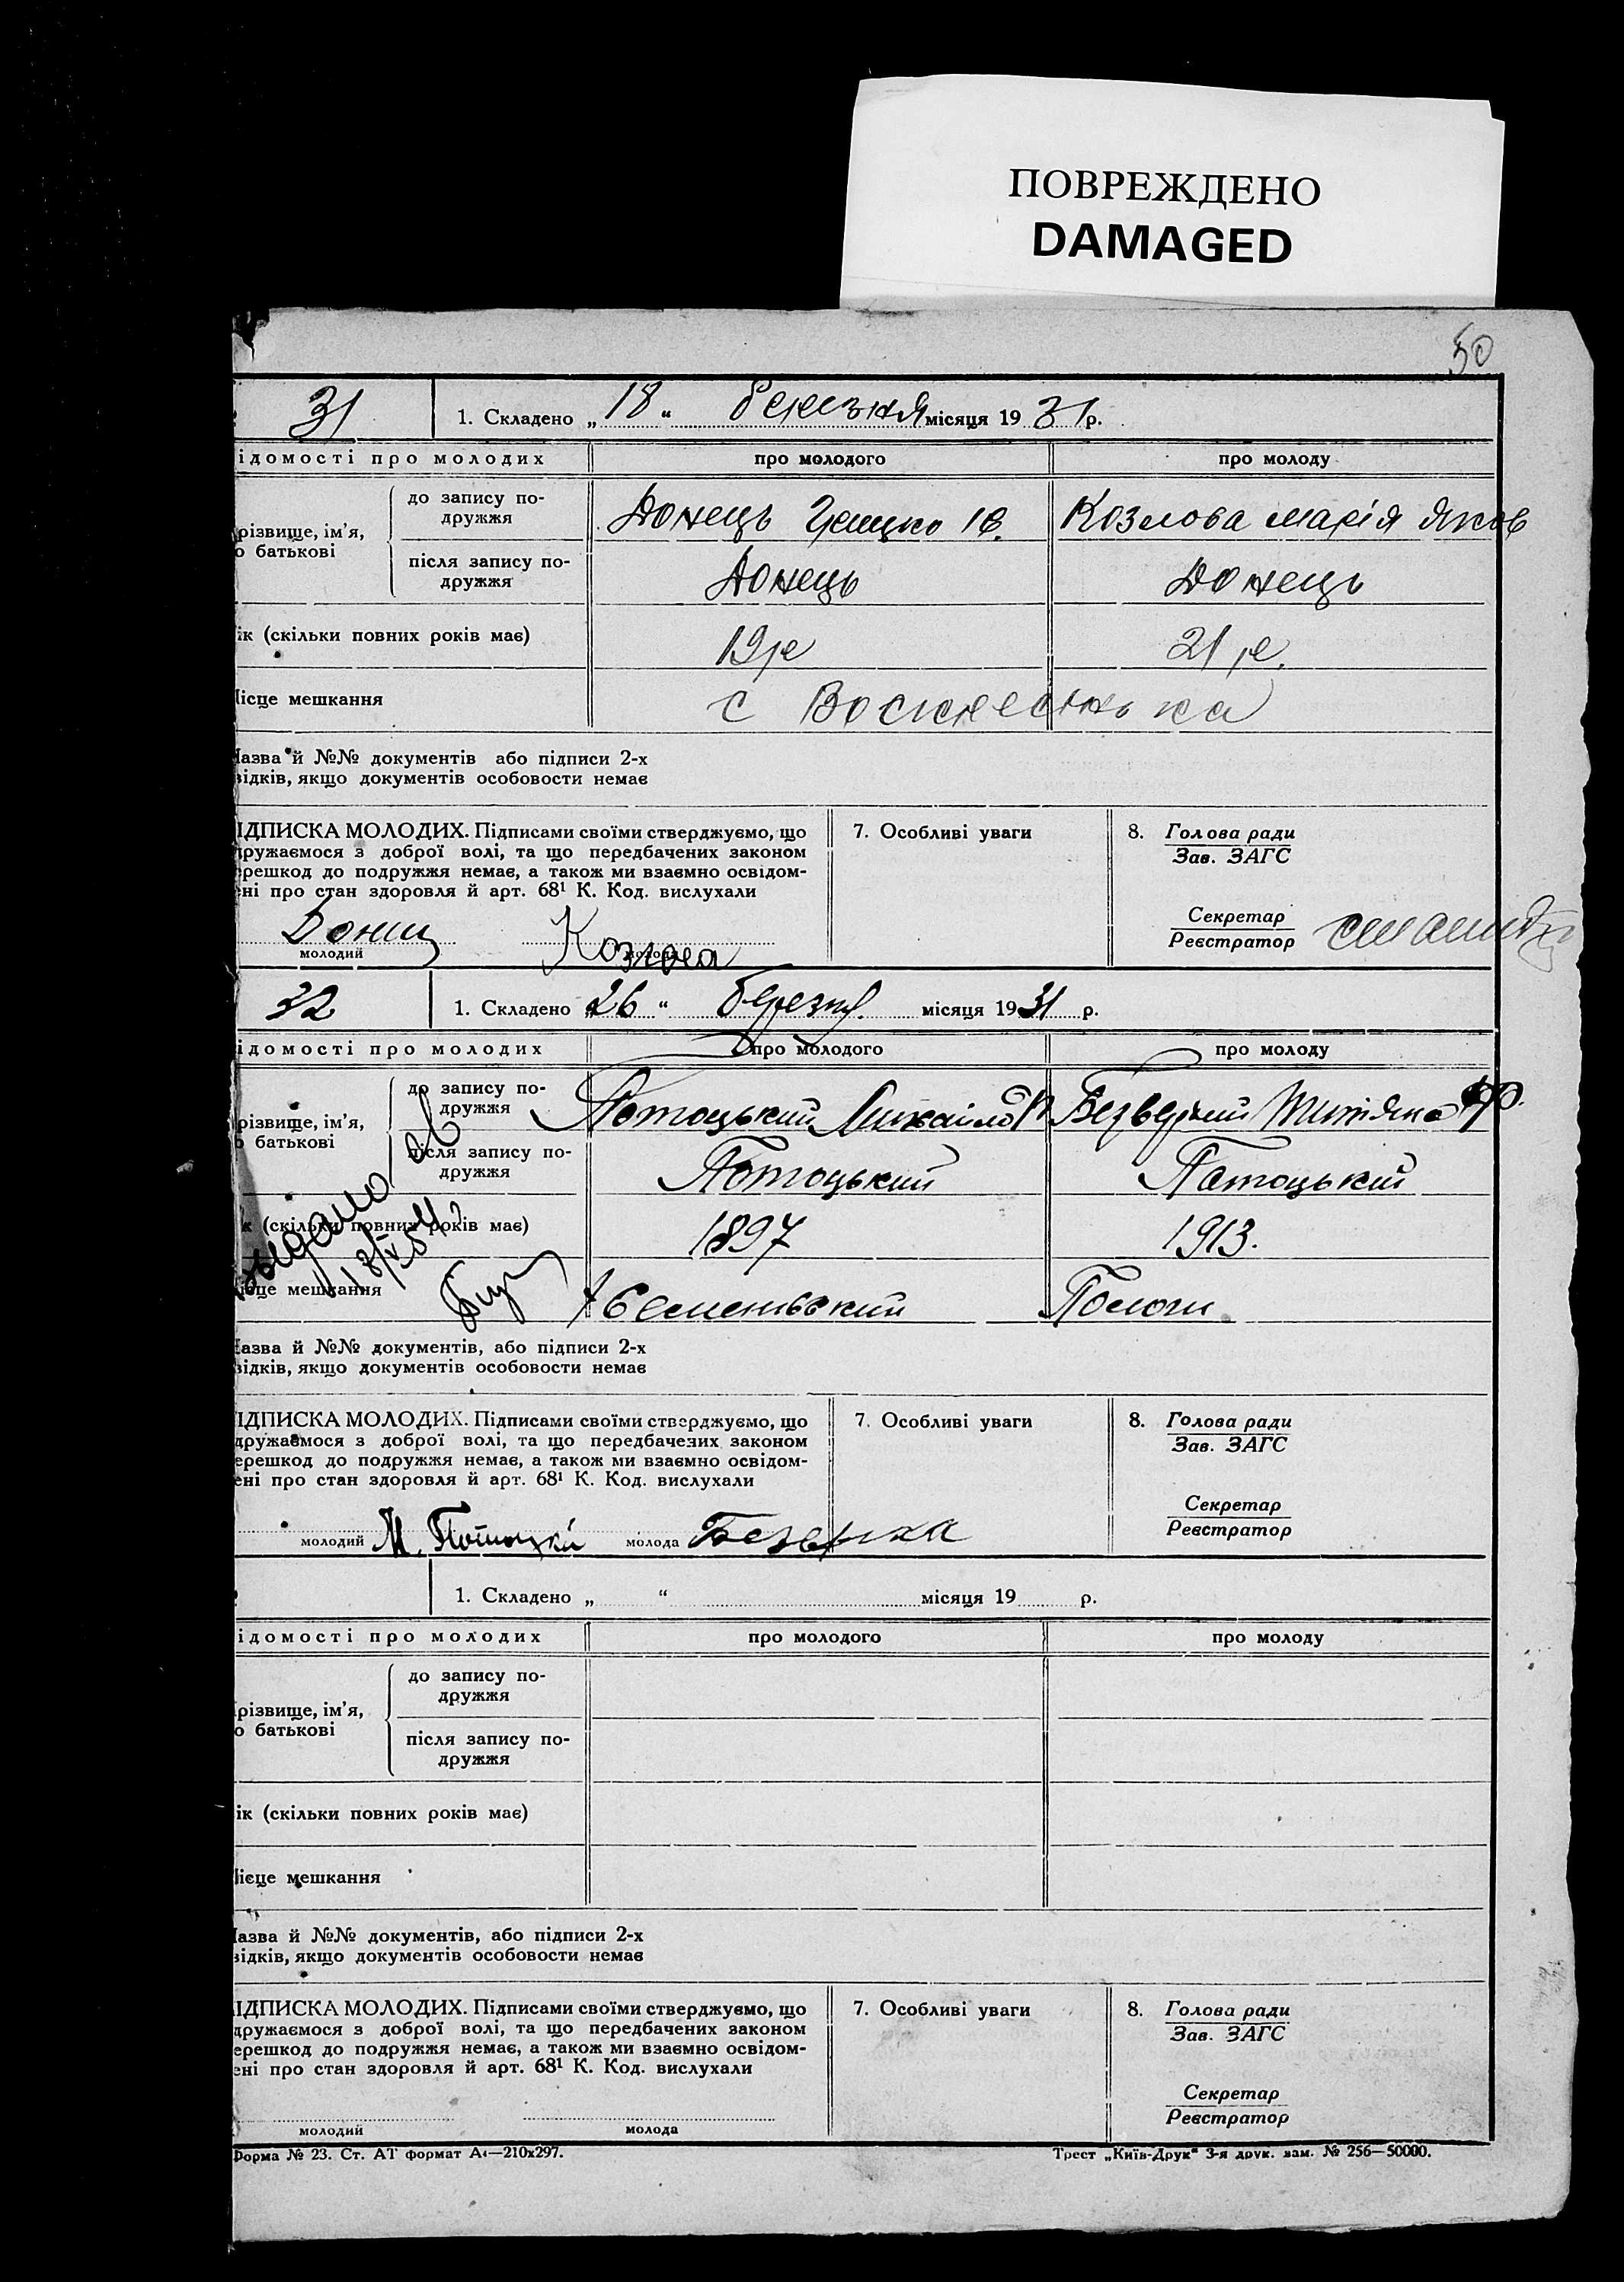 ПОВРЕЖДЕНО
DAMAGED
50
31 1. Складено „18“ березня місяця 1931 р.
ідомості про молодих про молодого про молоду
різвище, ім’я,
о батькові
до запису по-
дружжя
Донець Грицко Ів. Козлова Марія Яков
після запису по-
дружжя
Донець Донець
ік (скільки повних років має) 19 р 21 р.
ісце мешкання с Воскресенька
азва й №№ документів або підписи 2-х
відків, якщо документів особовости немає
ІДПИСКА МОЛОДИХ. Підписами своїми стверджуємо, що
дружаємося з доброї волі, та що передбачених законом
ерешкод до подружжя немає, а також ми взаємно освідом-
ені про стан здоровля й арт. 68¹ К. Код. вислухали
Донец Козлова
молодий
7. Особливі уваги
8. Голова ради
Зав. ЗАГС
Секретар
Реєстратор
32 1. Складено 26 “ березня місяця 1931 р.
ідомості про молодих про молодого про молоду
різвище, ім’я,
о батькові
до запису по-
дружжя
Потоцький Михайло Безверхий Титяна
після запису по-
дружжя
Потоцький Патоцький
ік (скільки повних років має) 1897 1913.
ісце мешкання Пологи
азва й №№ документів, або підписи 2-х
відків, якщо документів особовости немає
ІДПИСКА МОЛОДИХ. Підписами своїми стверджуємо, що
дружаємося з доброї волі, та що передбачених законом
ерешкод до подружжя немає, а також ми взаємно освідом-
ені про стан здоровля й арт. 68¹ К. Код. вислухали
молодий М. Потоцкий молода
7. Особливі уваги
8. Голова ради
Зав. ЗАГС
Секретар
Реєстратор
1. Складено „ “ місяця 19 р.
ідомості про молодих про молодого про молоду
різвище, ім’я,
о батькові
до запису по-
дружжя
після запису по-
дружжя
ік (скільки повних років має)
ісце мешкання
азва й №№ документів, або підписи 2-х
відків, якщо документів особовости немає
ІДПИСКА МОЛОДИХ. Підписами своїми стверджуємо, що
дружаємося з доброї волі, та що передбачених законом
ерешкод до подружжя немає, а також ми взаємно освідом-
ені про стан здоровля й арт. 68¹ К. Код. вислухали
молодий молода
7. Особливі уваги
8. Голова ради
Зав. ЗАГС
Секретар
Реєстратор
Форма № 23. Ст. АТ формат А4—210х297.
Трест „Київ-Друк“ 3-я друк. зам. № 256—50000.